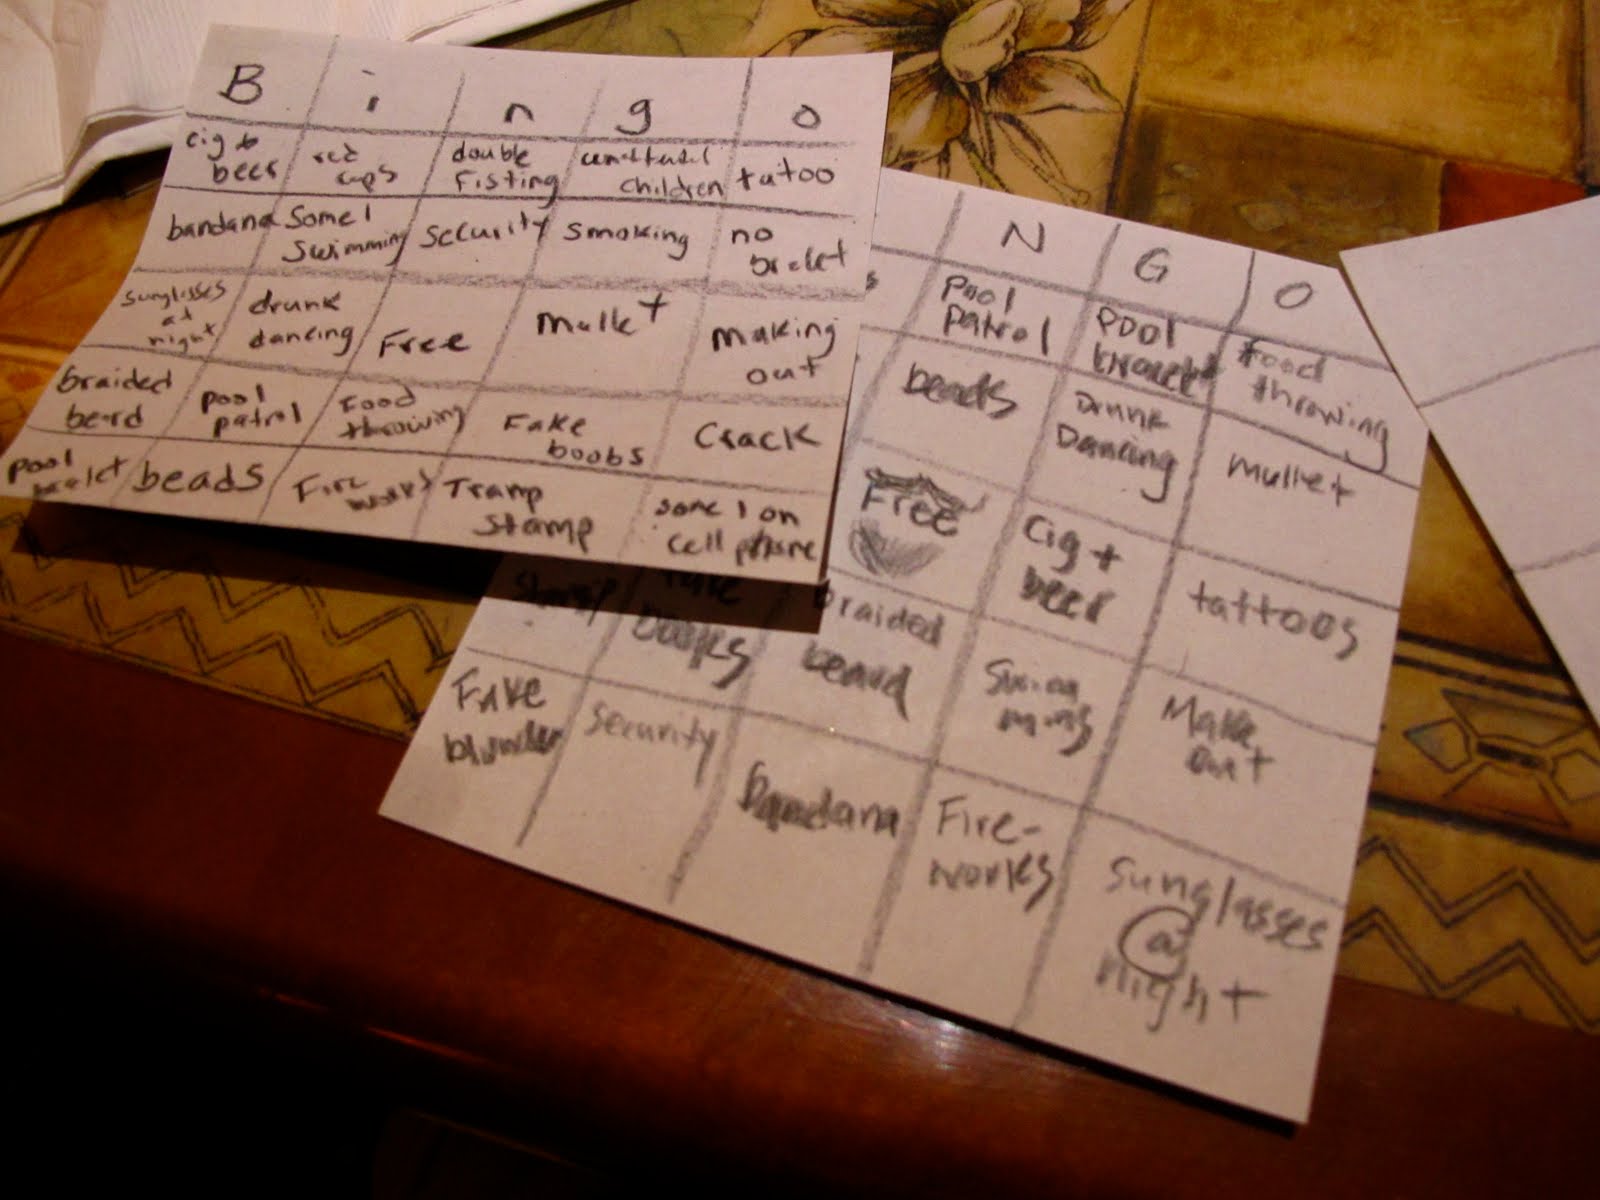 B i n g o
cig & beer red cups double Fisting children tatoo
bandana Some 1 swimming security smoking no bralet
sunglsses at night drunk dancing Free Mullet Making out
braided berd pool patrol Food throwing Fake boobs Crack
pool bralet beads Fire works Tramp Stamp some 1 on cell phone
N G O
Pool Patrol Pool bracelet food throwing
beads Drunk Dancing mullet
Free Cig + beer tattoos
braided beard Swimming Make out
Fake security bandana Fire-works sunglasses @ night